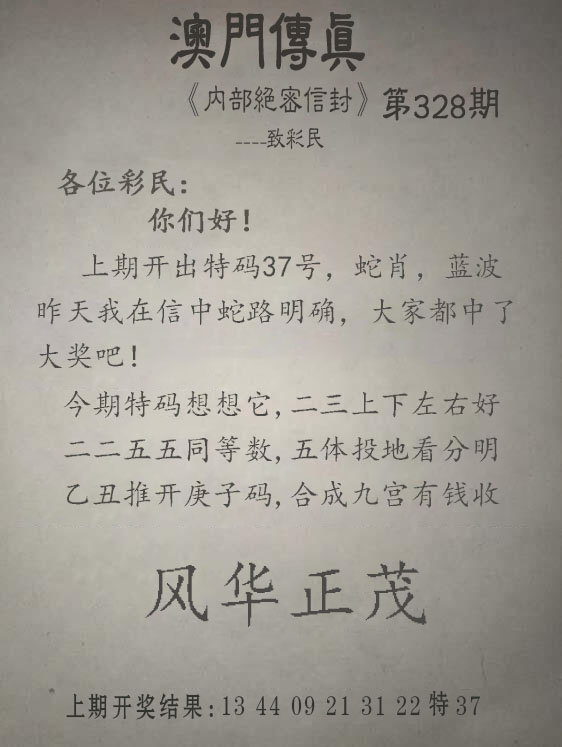 澳門傳眞
《内部絕密信封》第328期
----致彩民
各位彩民：
你们好！
上期开出特码37号，蛇肖，蓝波
昨天我在信中蛇路明确，大家都中了
大奖吧！
今期特码想想它,二三上下左右好
二二五五同等数,五体投地看分明
乙丑推开庚子码,合成九宫有钱收
风华正茂
上期开奖结果:13 44 09 21 31 22 特37